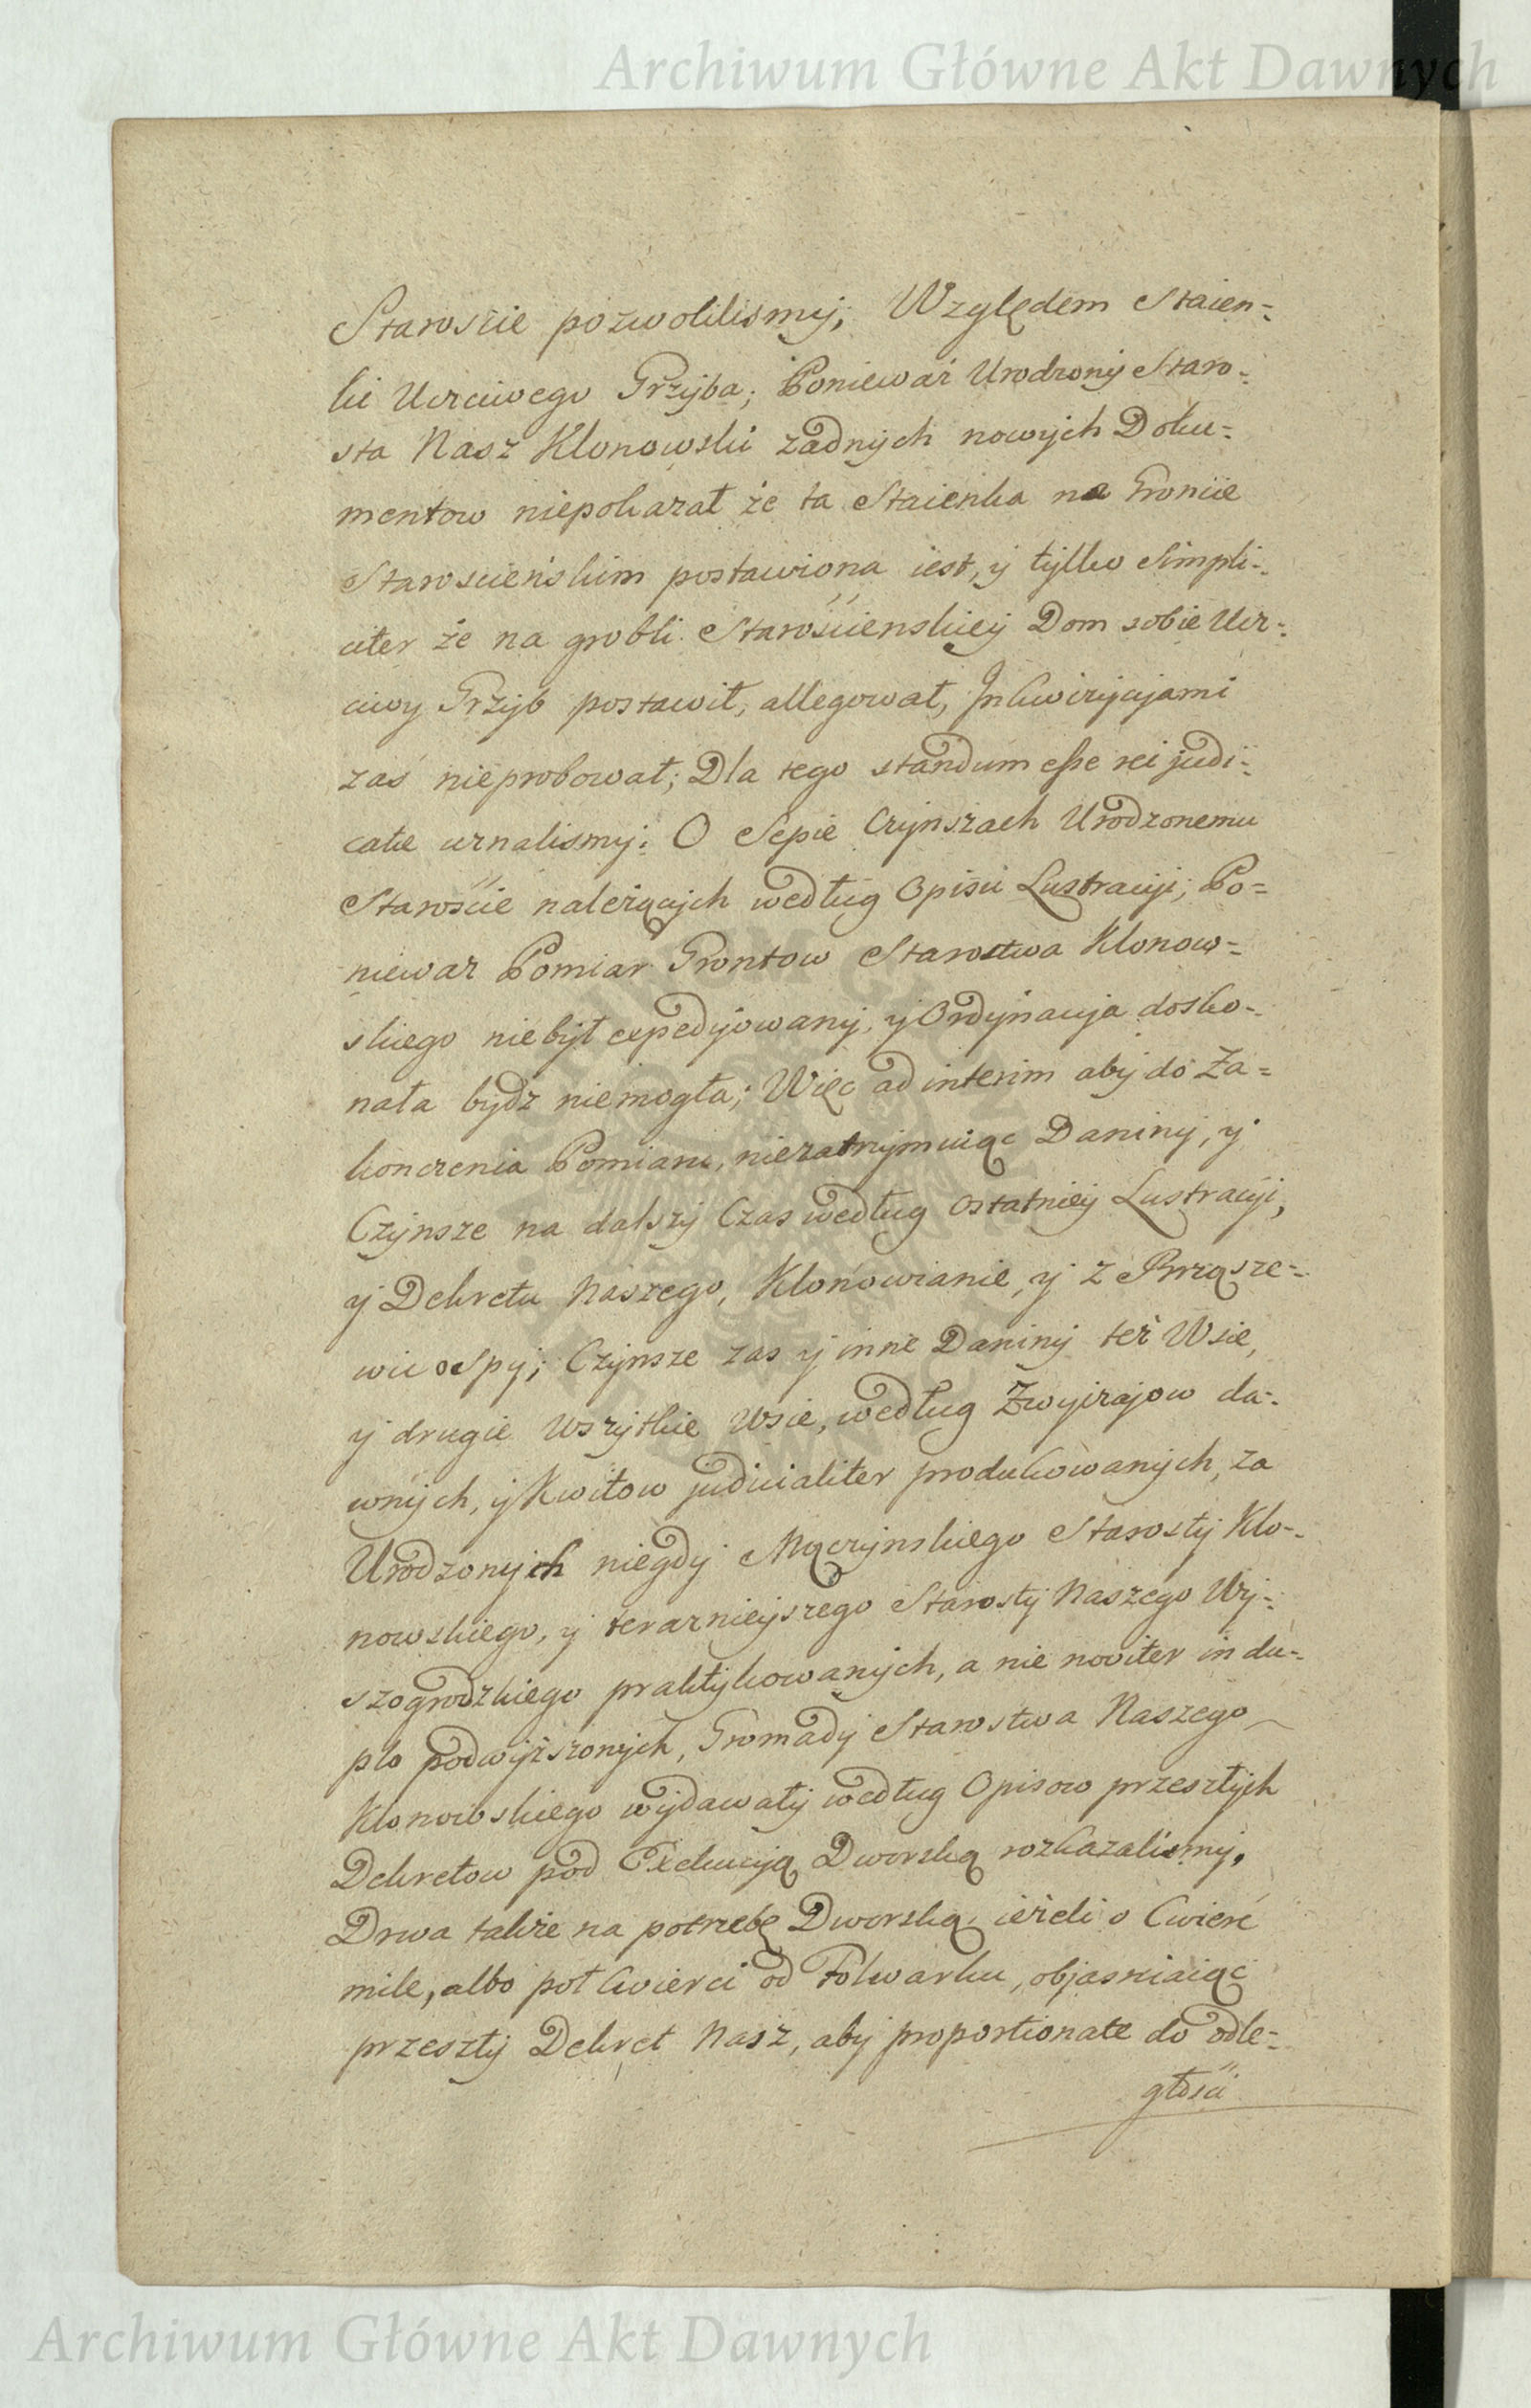 Archiwum Główne Akt Dawnych
Starosćie pozwolilismy; Względem Staien-
ki Uczciwego Grzyba; Poniewaź Urodzony Staro-
sta Nasz Klonowski żadnych nowych Doku-
mentow niepokazał źe ta Staienka na Gronćie
Starosćieńskim postawiona iest, y tylko Simpli-
citer źe na grobli Starosćienskiey Dom sobie Ucz-
ciwy Grzyb postawił, allegował, Inkwizycyjami
zaś nieprobował; Dla tego standum esse rei judi-
catæ uznalismy; O Sepie Czynszach Urodzonemu
Starośćie naleźących według Opisu Lustracyi; Po-
niewaz Pomiar Grontow Starostwa Klonow-
skiego niebył expedyowany, y Ordynacyja dosko-
nała bydz niemogła; Więc ad interim aby do Za-
konczenia Pomiaru, niezatrzymuiąc Daniny, y
Czynsze na dalszy Czas według ostatniey Lustracyi,
y Dekretu Naszego, Klonowianie, y z Brząsze-
wic ospy; Czynsze zas y inne Daniny też Wsie,
y drugie wszytkie Wsie, według Zwyczajow da-
wnych, y Kwitow judicialiter produkowanych, za
Urodzonych niegdy Mączynskiego Starosty Klo-
nowskiego, y terazniejszego Starosty Naszego Wy-
szogrodzkiego praktykowanych, a nie noviter in du-
plo podwyższonych, Gromady Starostwa Naszego
Klonowskiego wydawały według Opisow przeszłych
Dekretow pod Exekucyją Dworską rozkazalismy,
Drwa takźe na potrzebę Dworską, ieźeli o Cwierć
mile, albo poł Cwierci od Folwarku, objasniaiąc
przeszły Dekret Nasz, aby proportionate do odle-
głosći
Archiwum Główne Akt Dawnych